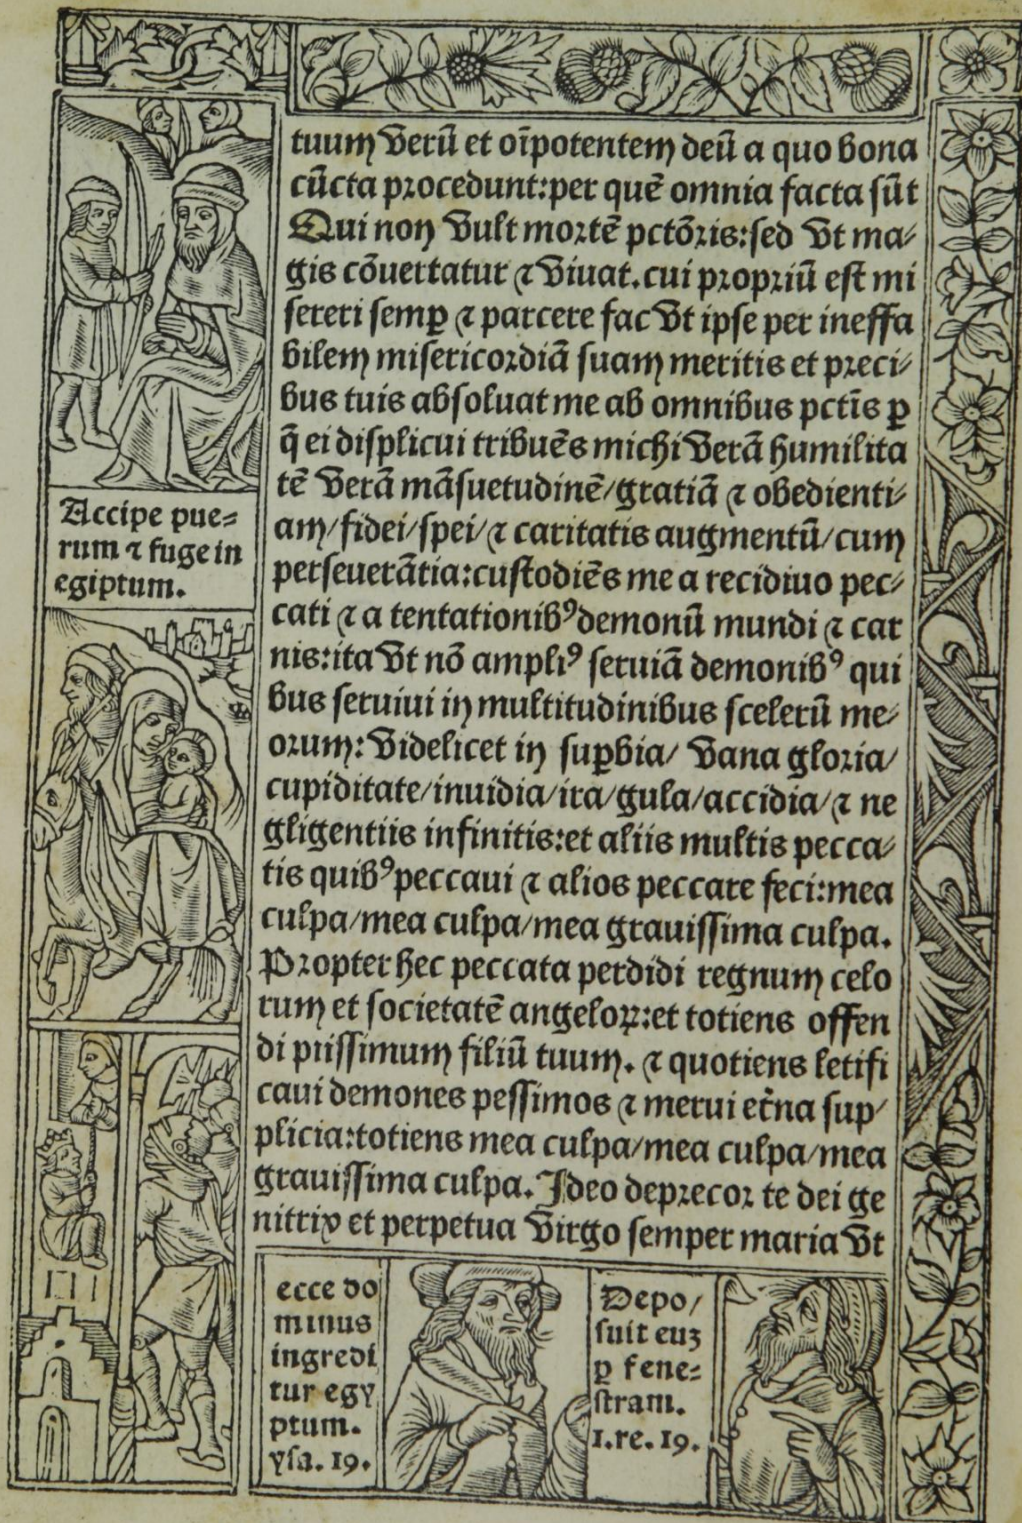 tuum verū et oīpotentem deū a quo bona
cūcta procedunt:per quē omnia facta sūt
Qui non vult mortē pctōris:sed vt ma⸗
gis cōuertatur ⁊ viuat.cui propriū est mi
sereri semꝑ ⁊ parcere fac vt ipse per ineffa
bilem misericordiā suam meritis et preci⸗
bus tuis absoluat me ab omnibus pctīs ꝑ
q̄ ei displicui tribuēs michi verā humilita
tē verā māsuetudinē/gratiā ⁊ obedienti⸗
am/fidei/spei/⁊ caritatis augmentū/cum
perseuerātia:custodiēs me a recidiuo pec⸗
cati ⁊ a tentationibꝰ demonū mundi ⁊ car
nis:ita vt nō ampliꝰ seruiā demonibꝰ qui
bus seruiui in multitudinibus scelerū me⸗
orum: videlicet in suꝑbia/ vana gloria/
cupiditate/inuidia/ira/gula/accidia/⁊ ne
gligentiis infinitis:et aliis multis pecca⸗
tis quibꝰ peccaui ⁊ alios peccare feci:mea
culpa/mea culpa/mea grauissima culpa.
Propter hec peccata perdidi regnum celo
rum et societatē angeloꝝ:et totiens offen
di piissimum filiū tuum. ⁊ quotiens letifi
caui demones pessimos ⁊ merui et̄na sup⸗
plicia:totiens mea culpa/mea culpa/mea
grauissima culpa.Ideo deprecor te dei ge
nitrix et perpetua virgo semper maria vt
Accipe pue⸗
rum ⁊ fuge in
egiptum.
ecce do
minus
ingredi
tur egy
ptum.
ysa. 19.
Depo/
suit euꝫ
ꝑ fene⸗
stram.
1.re.19.